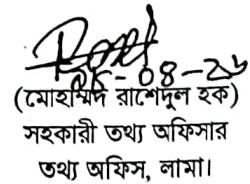 ০৮-২৬
(মোহাম্মদ রাশেদুল হক)
সহকারী তথ্য অফিসার
তথ্য অফিস, লামা।